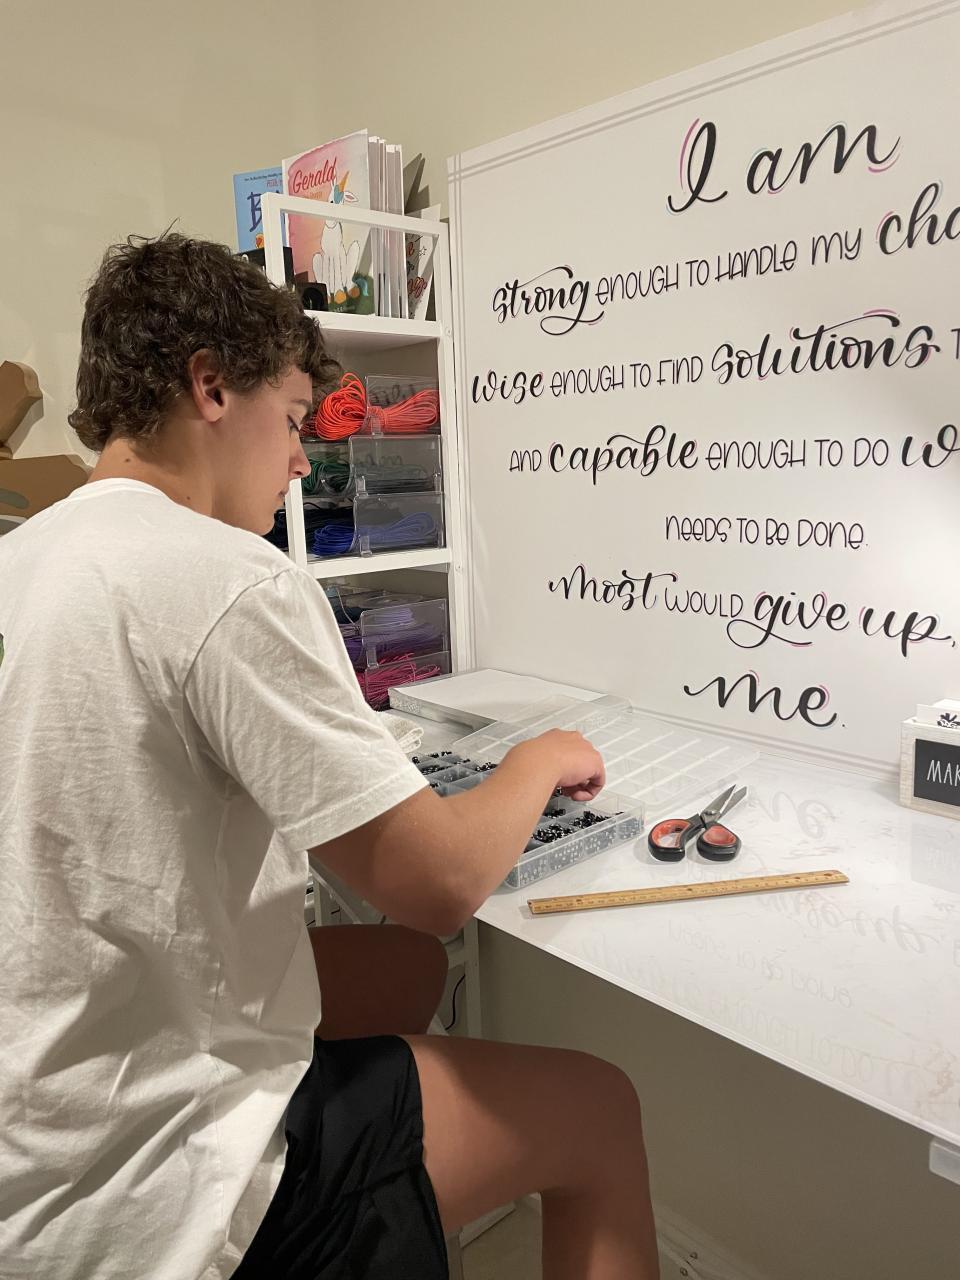 Gerald
I am
strong ENOUGH TO HANDLE MY
wise ENOUGH TO FIND solutions
AND capable ENOUGH TO DO
NEEDS TO BE DONE.
most WOULD give up,
me.